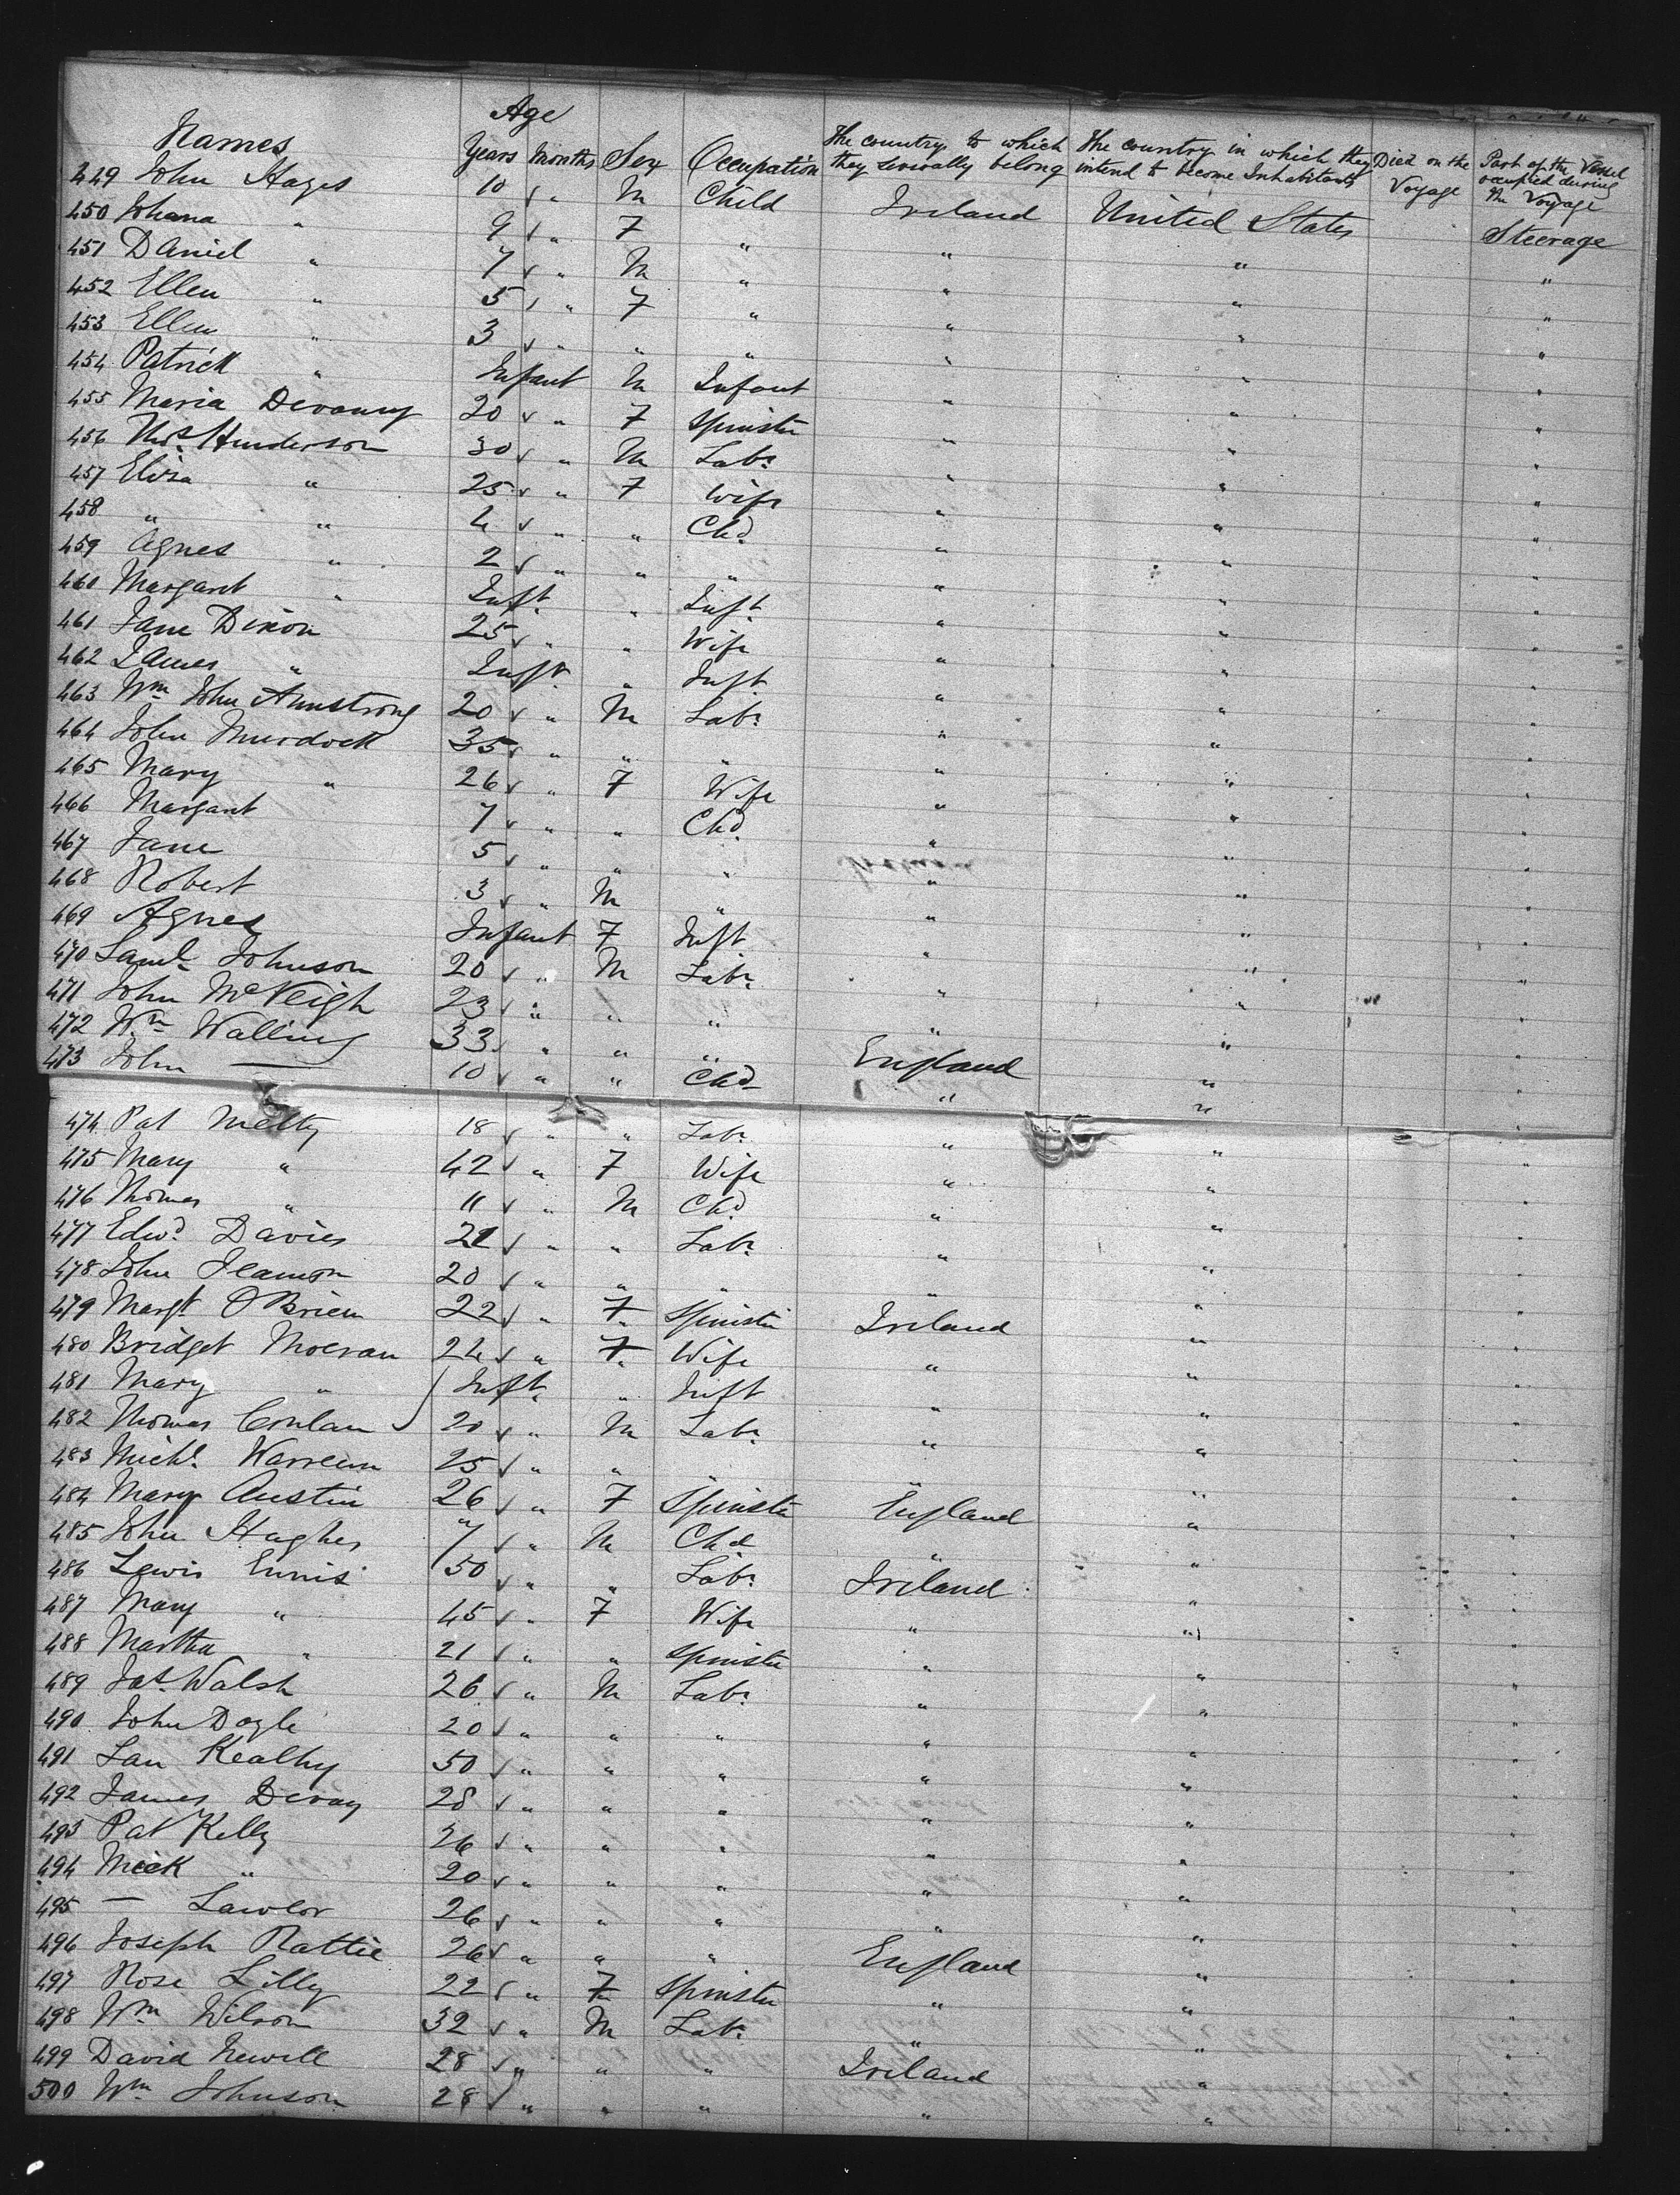 Names Age Years Months Sex Occupation The country to which they severally belong The country in which they intend to become Inhabitants Died on the Voyage Part of the Vessel occupied during the Voyage
449 John Hayes 10 " M Child Ireland United States Steerage
450 Johana " 9 " F " " " "
451 Daniel " 7 " M " " " "
452 Ellen " 5 " F " " " "
453 Ellen " 3 " " " " " "
454 Patrick " Infant M Infant " " "
455 Maria Devanny 20 " F Spinster " " "
456 Thos. Henderson 30 " M Labr " " "
457 Eliza " 25 " F Wife " " "
458 " " 4 " " Chd " " "
459 Agnes " 2 " " " " " "
460 Margaret " Inft. " Inft. " " "
461 Jane Dixon 25 " " Wife " " "
462 James " Inft. " Inft. " " "
463 Wm John Armstrong 20 " M Labr " " "
464 John Murdock 35 " " " " " "
465 Mary " 26 " F Wife " " "
466 Margaret 7 " " Chd " " "
467 Jane 5 " " " " " "
468 Robert 3 " M " " " "
469 Agnes Infant F Inft " " "
470 Saml Johnson 20 " M Labr " " "
471 John McVeigh 23 " " " " " "
472 Wm Walling 33 " " " England " "
473 John — 10 " " Chd " " "
474 Pat Melty 18 " " Labr " " "
475 Mary " 42 " F Wife " " "
476 Thomas " 11 " M Chd " " "
477 Edwd Davies 21 " " Labr " " "
478 John 20 " " " " " "
479 Margt O'Brien 22 " F Spinster Ireland " "
480 Bridget Moeran 24 " F Wife " " "
481 Mary " Inft. " Inft " " "
482 Thomas Conlan 20 " M Labr " " "
483 Michl Warren 25 " " " " "
484 Mary Austin 26 " F Spinster England " "
485 John Hughes 7 " M Chd " " "
486 Lewis Ennis 50 " " Labr Ireland " "
487 Mary " 45 " F Wife " " "
488 Martha " 21 " " Spinster " " "
489 Walsh 26 " M Labr " " "
490 John Doyle 20 " " " " " "
491 Kealhy 50 " " " " " "
492 James Devoy 28 " " " " " "
493 Pat Kelly 26 " " " " " "
494 Mick " 20 " " " " " "
495 — Lawlor 26 " " " " " "
496 Joseph Rattie 26 " " " England " "
497 Rose Lilly 22 " F Spinster " " "
498 Wm Wilson 32 " M Labr " " "
499 David Newell 28 " " " Ireland " "
500 Wm Johnson 28 " " " " " "